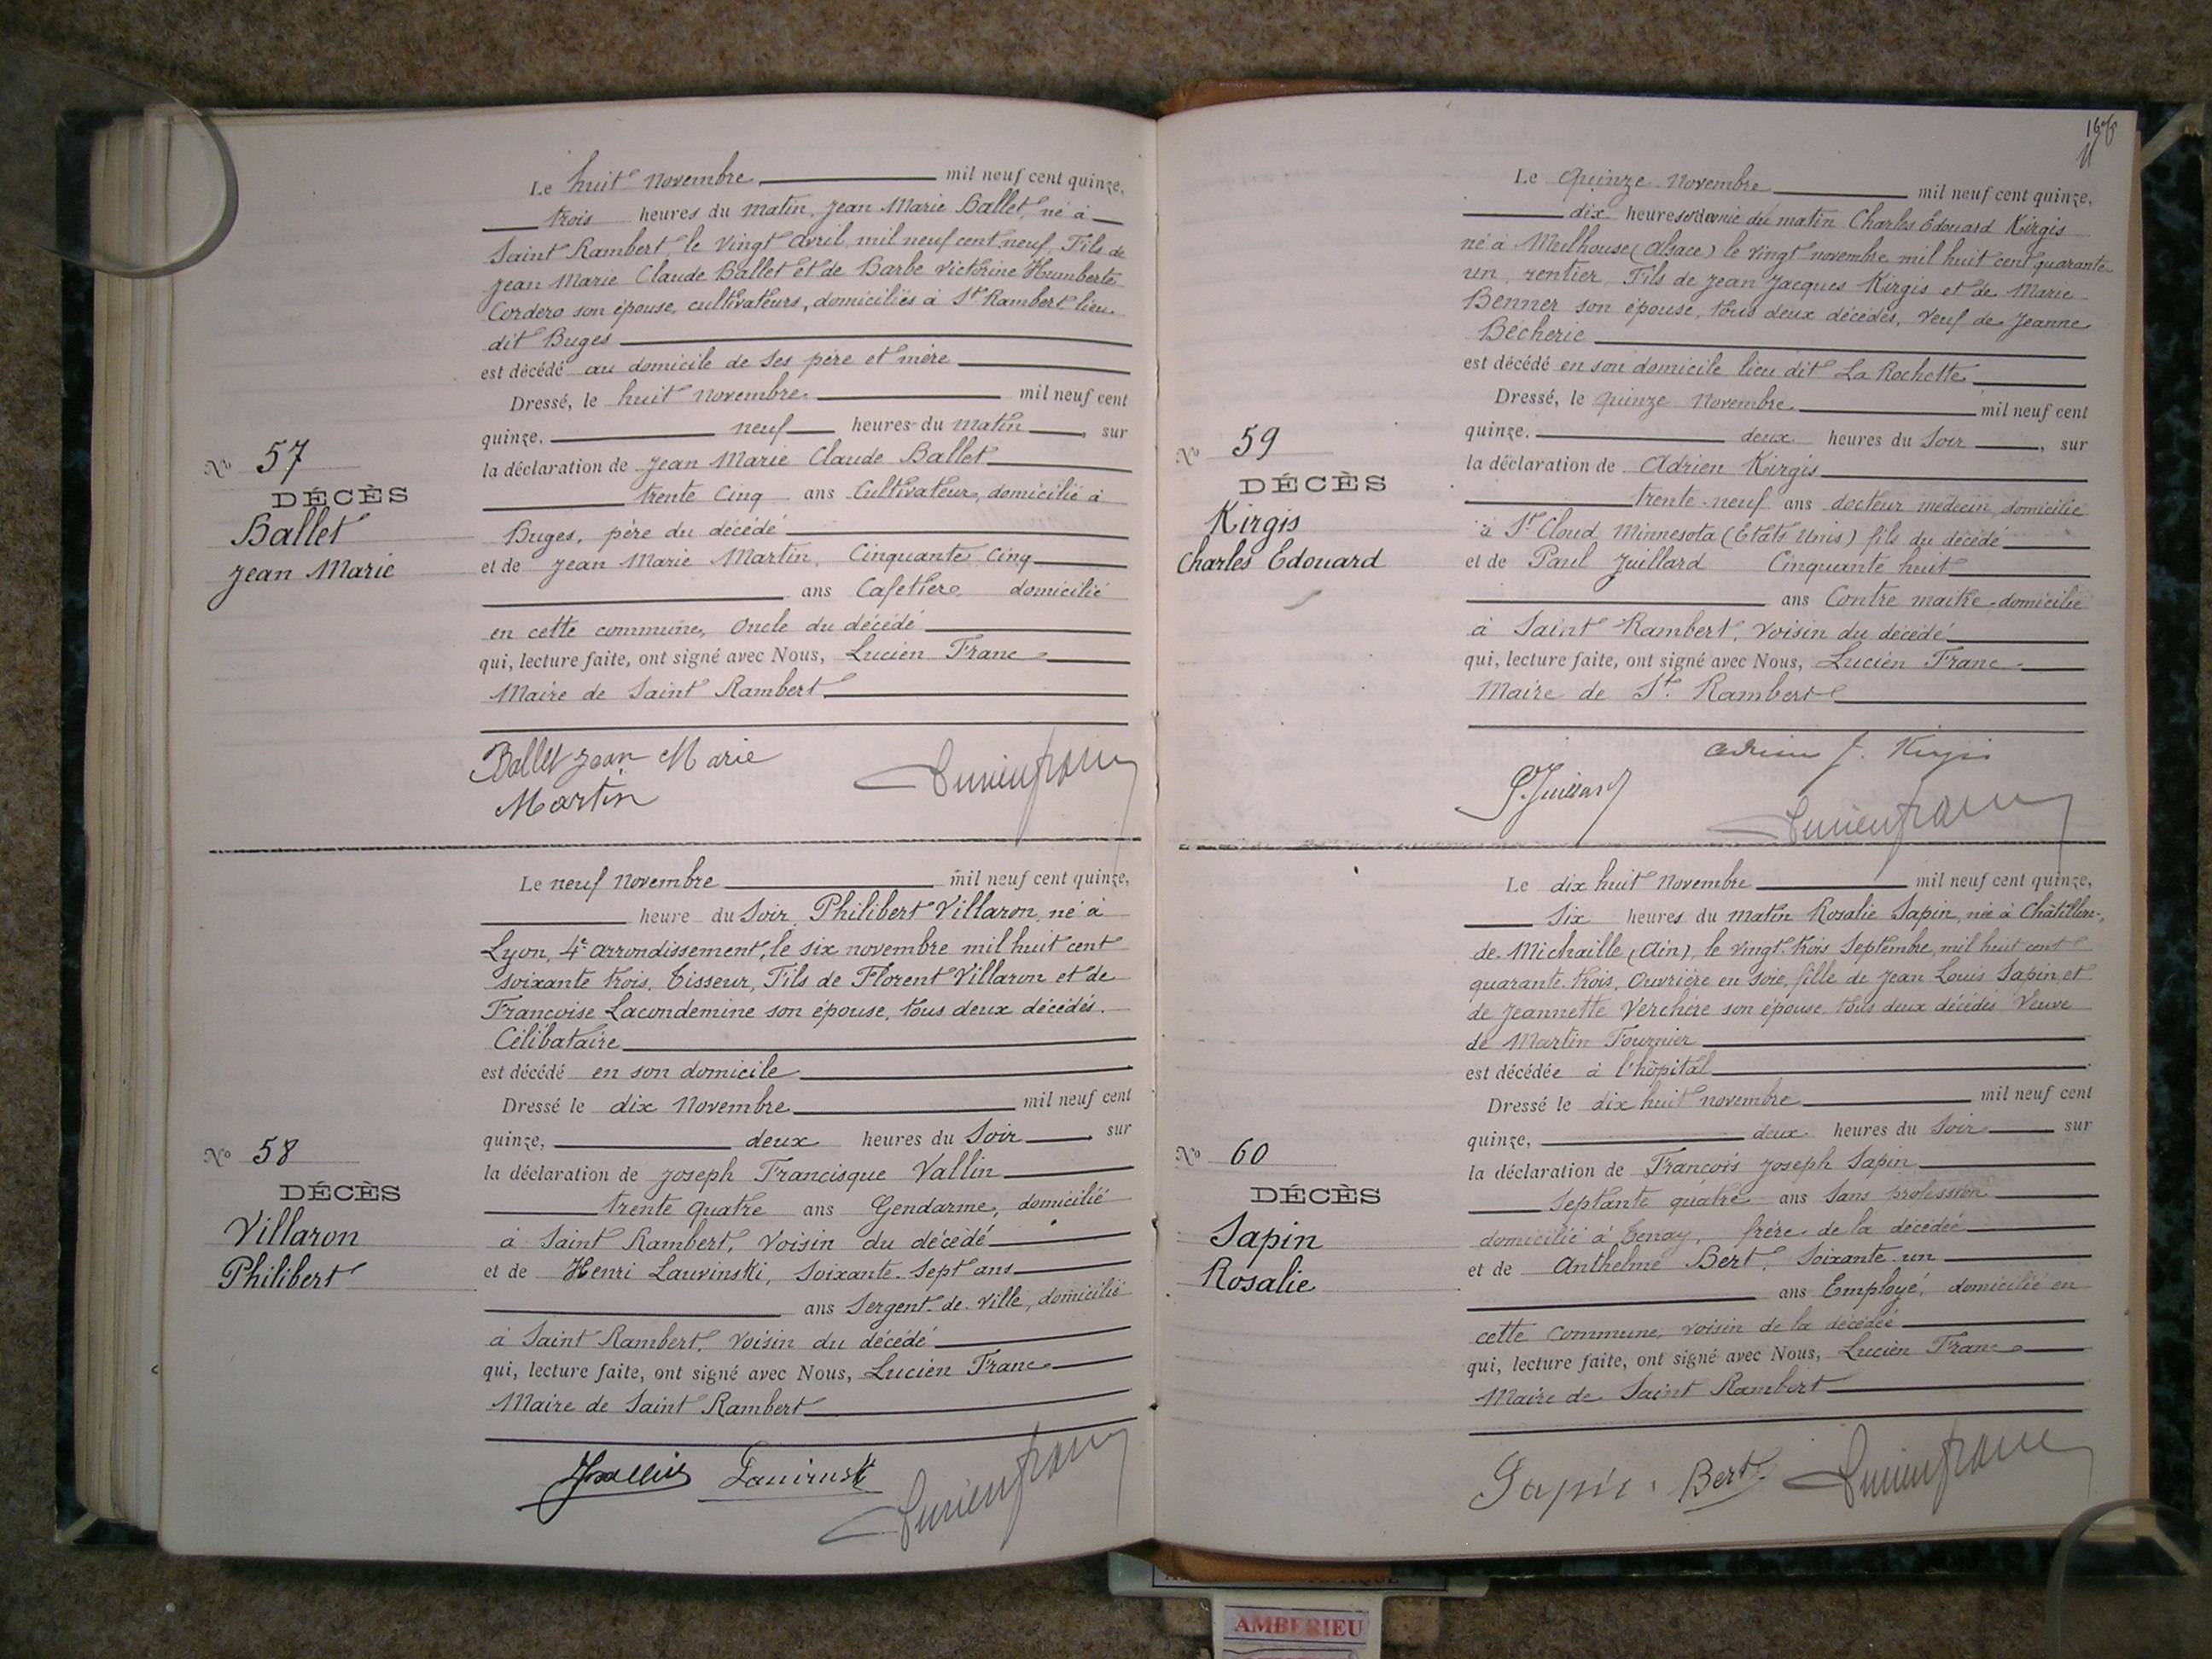 Le huit novembre mil neuf cent quinze,
trois heures du matin, Jean Marie Ballet, né à
Saint Rambert, le vingt avril mil neuf cent neuf, Fils de
Jean Marie Claude Ballet et de Barbe Victorine Humberte
Cordero son épouse, cultivateurs, domiciliés à St Rambert, lieu
dit Buges
est décédé au domicile de ses père et mère
Dressé, le huit novembre mil neuf cent
quinze, neuf heures du matin, sur
la déclaration de Jean Marie Claude Ballet
trente cinq ans Cultivateur, domicilié à
Buges, père du décédé
et de Jean Marie Martin, Cinquante Cinq
ans Cafetier, domicilié
en cette commune, Oncle du décédé
qui, lecture faite, ont signé avec Nous, Lucien Franc
Maire de Saint Rambert
Ballet Jean Marie
Martin
Lucien franc
No 57
DÉCÈS
Ballet
Jean Marie
Le neuf novembre mil neuf cent quinze,
heure du Soir Philibert Villaron, né à
Lyon, 4e arrondissement, le six novembre mil huit cent
soixante trois, Tisseur, Fils de Florent Villaron et de
Francoise Lacondemine son épouse, tous deux décédés.
Célibataire
est décédé en son domicile
Dressé le dix Novembre mil neuf cent
quinze, deux heures du Soir, sur
la déclaration de Joseph Francisque Vallin
trente quatre ans Gendarme, domicilié
à Saint Rambert, Voisin du décédé
et de Henri Lauvinski, Soixante Sept ans
ans Sergent de ville, domicilié
à Saint Rambert, Voisin du décédé
qui, lecture faite, ont signé avec Nous, Lucien Franc
Maire de Saint Rambert
Lucien franc
No 58
DÉCÈS
Villaron
Philibert
Le Quinze Novembre mil neuf cent quinze,
dix heures et demie du matin Charles Edouard Kirgis
né à Mulhouse (Alsace) le vingt novembre mil huit cent quarante
un, rentier, Fils de Jean Jacques Kirgis et de Marie
Benner son épouse, tous deux décédés, Veuf de Jeanne
Bécherie
est décédé en son domicile lieu dit La Rochette
Dressé, le quinze Novembre mil neuf cent
quinze, deux heures du Soir, sur
la déclaration de Adrien Kirgis
trente-neuf ans docteur médecin, domicilié
à St Cloud Minnesota (Etats Unis) fils du décédé
et de Paul Juillard Cinquante huit
ans Contre maitre domicilié
à Saint Rambert, Voisin du décédé
qui, lecture faite, ont signé avec Nous, Lucien Franc
Maire de St. Rambert
Adrien J. Kirgis
P. Juillard
Lucien franc
No 59
DÉCÈS
Kirgis
Charles Edouard
Le dix huit Novembre mil neuf cent quinze,
Six heures du matin Rosalie Sapin, née à Châtillon-
de Michaille (Ain), le vingt-trois Septembre, mil huit cent
quarante-trois, Ouvrière en soie, fille de Jean Louis Sapin et
de Jeannette Verchère son épouse, tous deux décédés Veuve
de Martin Fournier
est décédée à l'hôpital
Dressé le dix huit novembre mil neuf cent
quinze, deux heures du Soir sur
la déclaration de François Joseph Sapin
Septante quatre ans Sans profession
domicilié à Tenay, frère de la décédée
et de Anthelme Bert, Soixante un
ans Employé, domicilié en
cette commune, voisin de la décédée
qui, lecture faite, ont signé avec Nous, Lucien Franc
Maire de Saint Rambert
Sapin Bert Lucien franc
No 60
DÉCÈS
Sapin
Rosalie
AMBERIEU